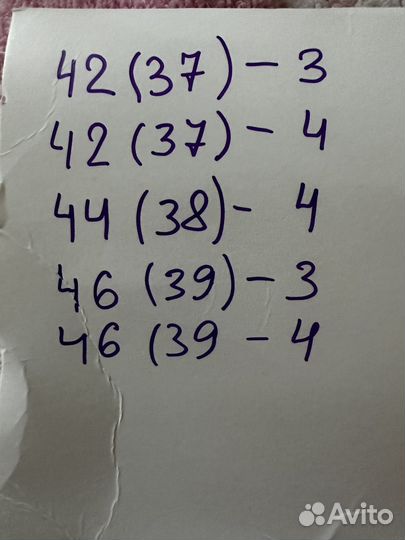 42 (37) - 3
42 (37) - 4
44 (38) - 4
46 (39) - 3
46 (39 - 4
Avito